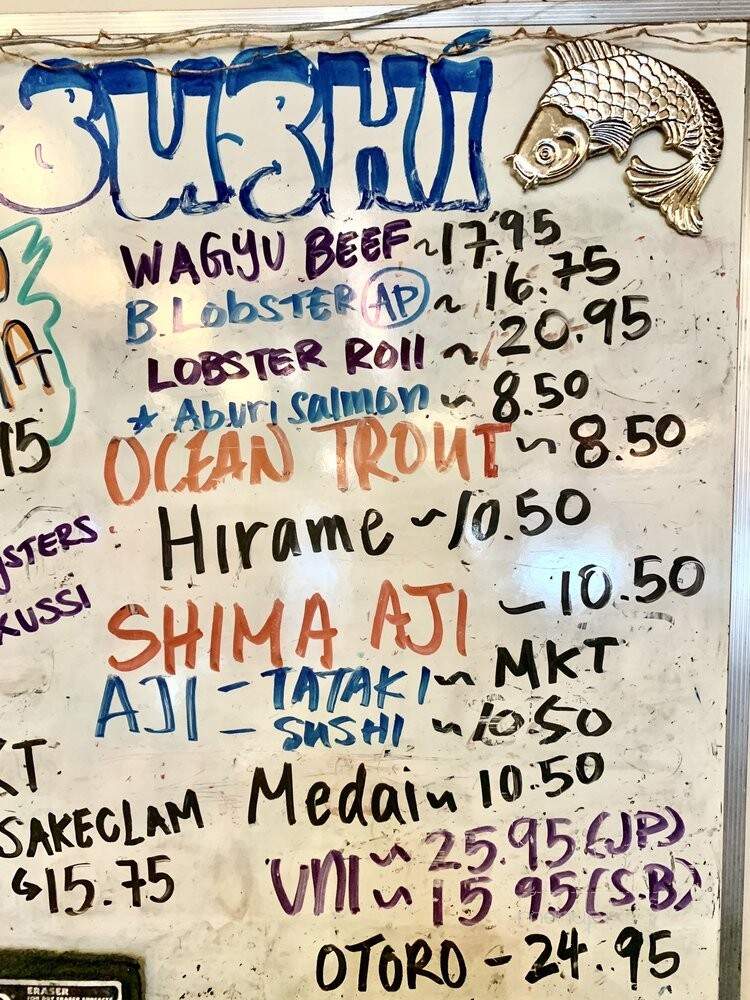 SUSHI
WAGYU BEEF ~ 17.95
B. LOBSTER AP ~ 16.75
LOBSTER ROll ~ 20.95
★ Aburi salmon ~ 8.50
OCEAN TROUT ~ 8.50
15
Hirame ~ 10.50
SHIMA AJI ~ 10.50
AJI - TATAKI ~ MKT
- SUSHI ~ 10.50
Medai ~ 10.50
SAKECLAM
↳15.75
UNI ~ 25.95 (JP)
~ 15.95 (S.B)
OTORO - 24.95
ERASER